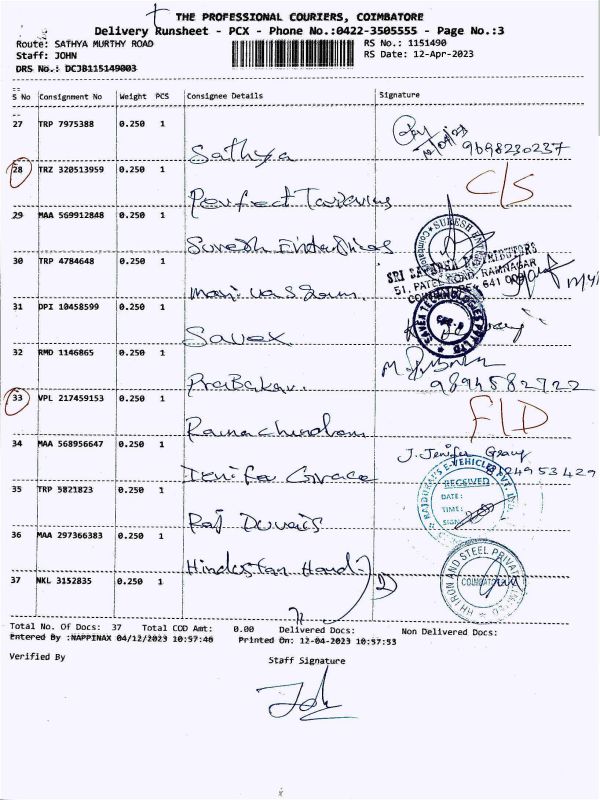 THE PROFESSIONAL COURIERS, COIMBATORE
Delivery Runsheet - PCX - Phone No.:0422-3505555 - Page No.:3
Route: SATHYA MURTHY ROAD RS No.: 1151490
Staff: JOHN RS Date: 12-Apr-2023
DRS No.: DCJB115149003
S No Consignment No Weight PCS Consignee Details Signature
27 TRP 7975388 0.250 1 Sathya 12/04/23 9698230237
28 TRZ 320513959 0.250 1 Perfect C/S
29 MAA 569912848 0.250 1 Suresh Enterprises
30 TRP 4784648 0.250 1
SRI DISTRIBUTORS
51, PATEL ROAD, RAMNAGAR
641 009
31 DPI 10458599 0.250 1 Savex
SAVEX TECHNOLOGIES PVT LTD
32 RMD 1146865 0.250 1 Prabakar 9894582722
33 VPL 217459153 0.250 1 Ramachandran F/D
34 MAA 568956647 0.250 1 Jenifa Grace J. Jenifer Gracy
35 TRP 5821823 0.250 1 Raj Durais
RAJDURAI'S E-VEHICLES PVT. LTD.
RECEIVED
DATE:
TIME:
SIGN:
36 MAA 297366383 0.250 1 Hindustan Hand
HH IRON AND STEEL PRIVATE LIMITED
COIMBATORE
37 NKL 3152835 0.250 1
Total No. Of Docs: 37 Total COD Amt: 0.00 Delivered Docs: Non Delivered Docs:
Entered By :NAPPINAX 04/12/2023 10:57:46 Printed On: 12-04-2023 10:57:53
Verified By Staff Signature